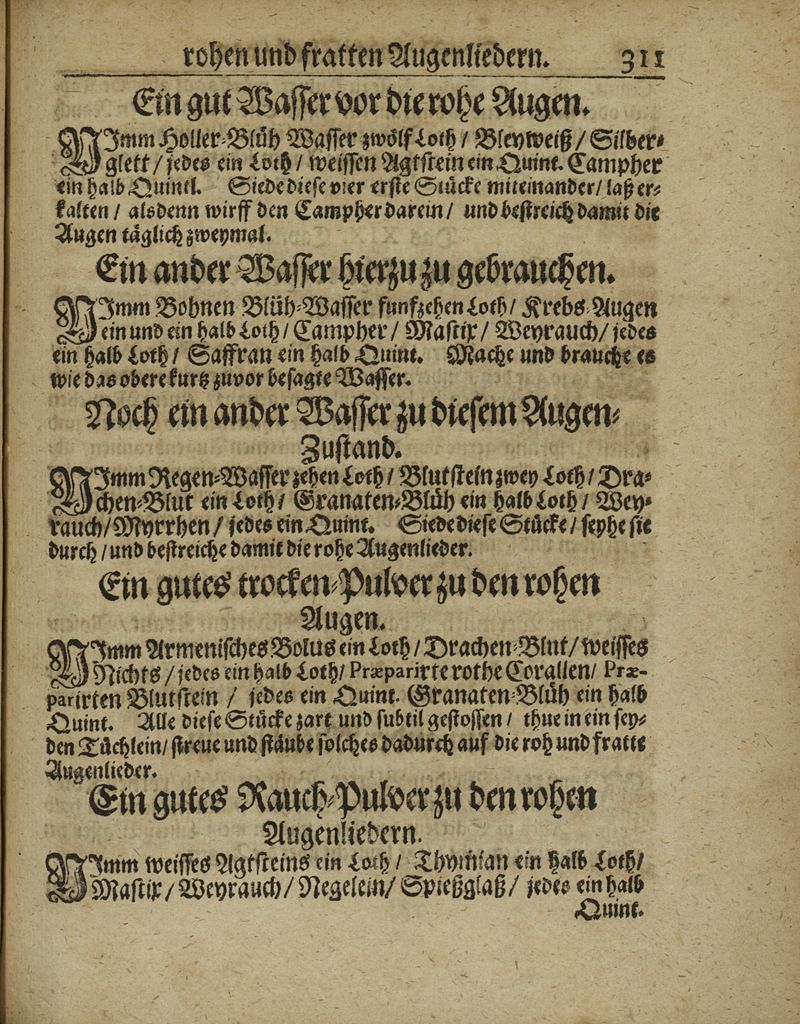 rohen und fratten Augenliedern. 311
Ein gut Wasser vor die rohe Augen.
NImm Holler-Blüh Wasser zwölf Loth / Bleyweiß / Silber-
glett / jedes ein Loth / weissen Agtstein ein Quint. Campher
ein halb Quintl. Siede diese vier erste Stücke miteinander / laß er-
kalten / alsdenn wirff den Campher darein / und bestreich damit die
Augen täglich zweymal.
Ein ander Wasser hierzu zu gebrauchen.
NImm Bohnen Blüh-Wasser funfzehen Loth / Krebs-Augen
ein und ein halb Loth / Campher / Mastix / Weyrauch / jedes
ein halb Loth / Saffran ein halb Quint. Mache und brauche es
wie das obere kurtz zuvor besagte Wasser.
Noch ein ander Wasser zu diesem Augen-
Zustand.
NImm Regen-Wasser zehen Loth / Blutstein zwey Loth / Dra-
chen-Blut ein Loth / Granaten-Blüh ein halb Loth / Wey-
rauch / Myrrhen / jedes ein Quint. Siede diese Stücke / seyhe sie
durch / und bestreiche damit die rohe Augenlieder.
Ein gutes trocken-Pulver zu den rohen
Augen.
NImm Armenisches Bolus ein Loth / Drachen-Blut / weisses
Nichts / jedes ein halb Loth / Præparirte rothe Corallen / Præ-
parirten Blutstein / jedes ein Quint. Granaten-Blüh ein halb
Quint. Alle diese Stücke zart und subtil gestossen / thue in ein sey-
den Tüchlein / streue und stäube solches dadurch auf die roh und fratte
Augenlieder.
Ein gutes Rauch-Pulver zu den rohen
Augenliedern.
NImm weisses Agtsteins ein Loth / Thymian ein halb Loth /
Mastix / Weyrauch / Negelein / Spießglaß / jedes ein halb
Quint.